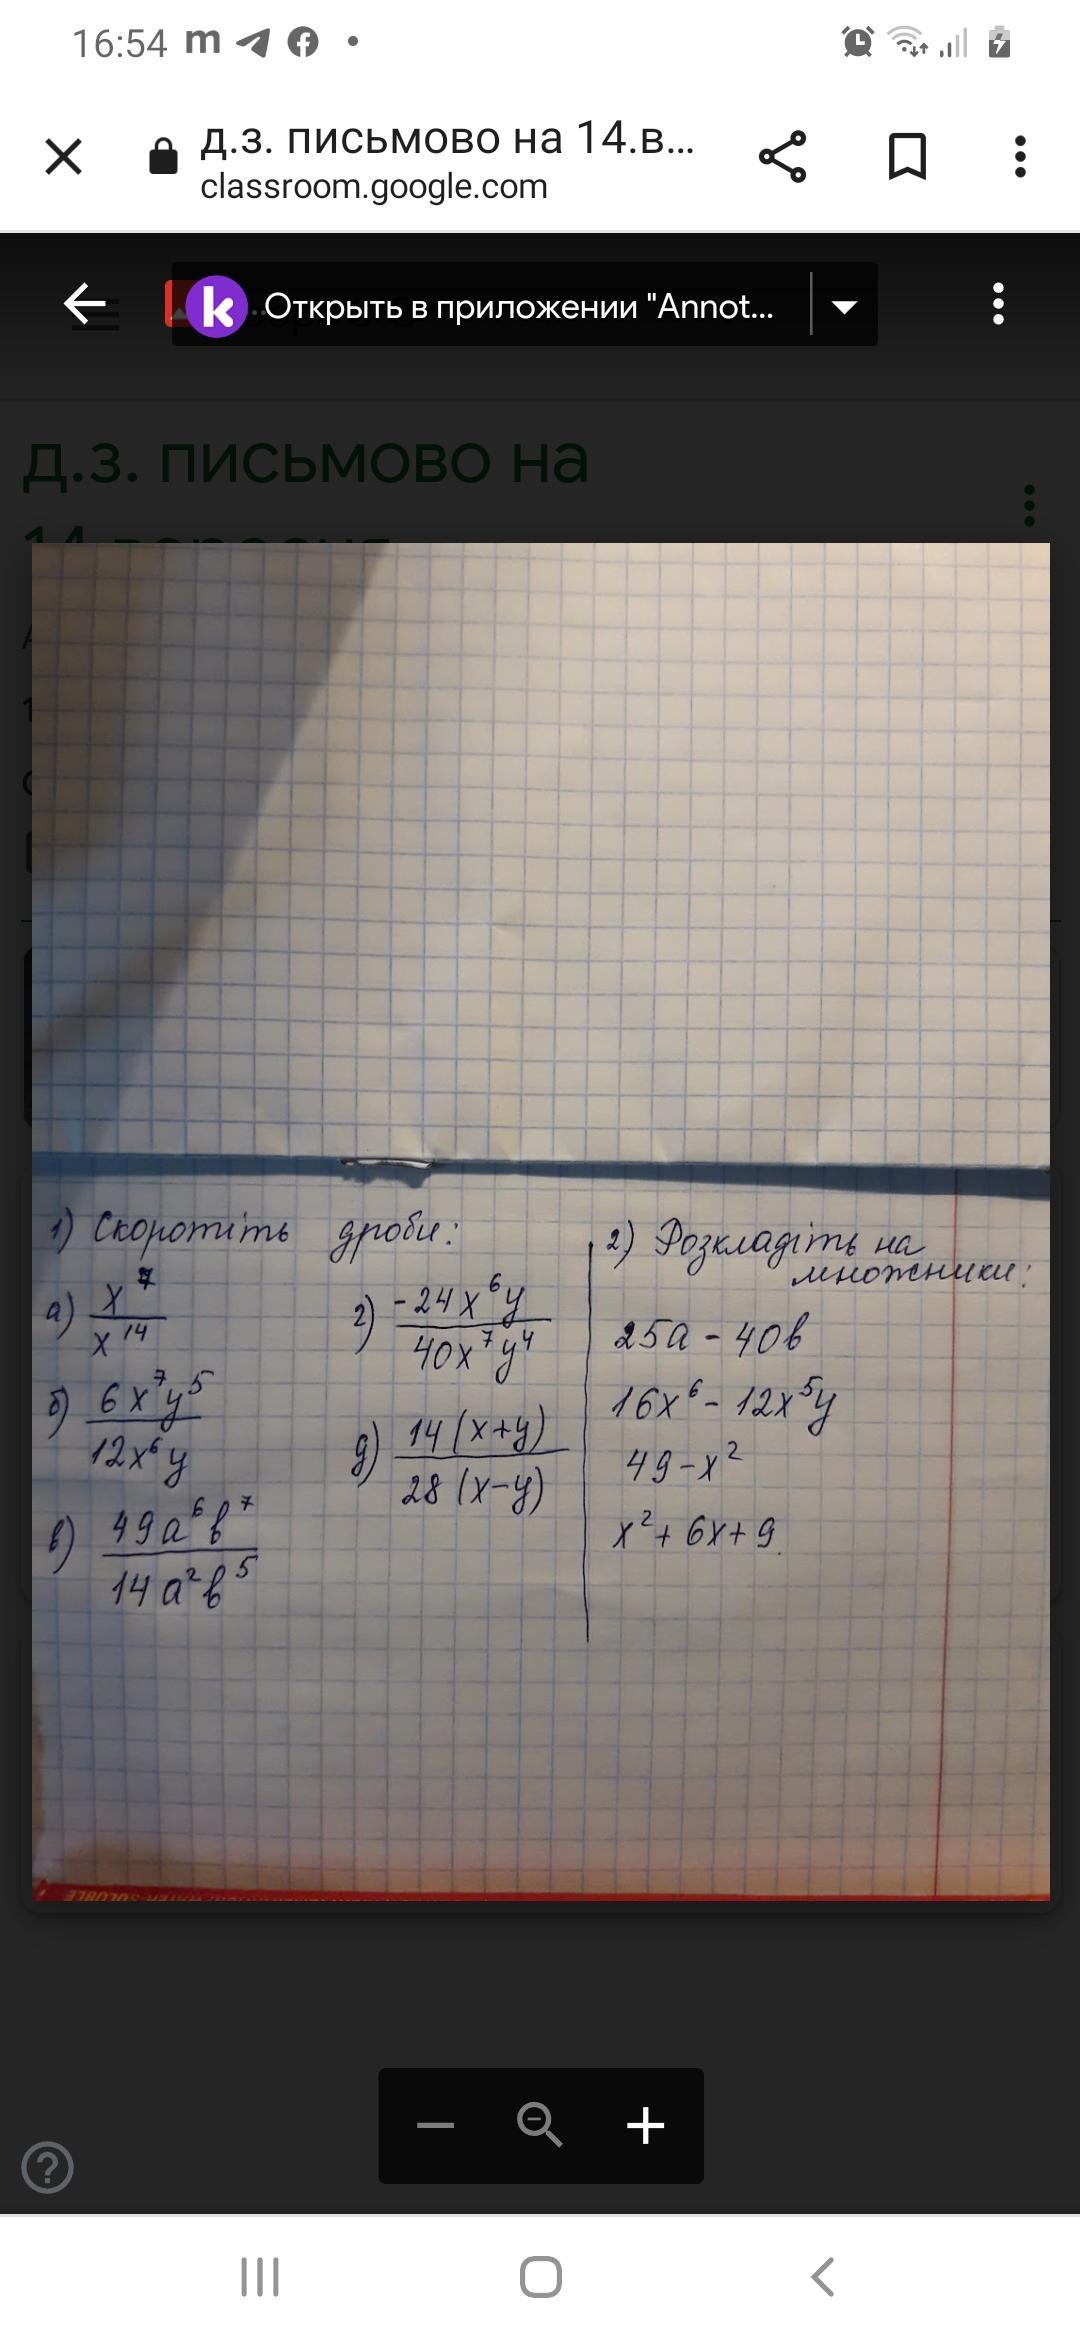 16:54 m
д.з. письмово на 14.в...
classroom.google.com
Открыть в приложении "Annot...
д.з. письмово на
14 вересня
1) Скоротіть дроби:
а) x^7 / x^14
б) 6x^7y^5 / 12x^6y
в) 49a^6b^7 / 14a^2b^5
г) -24x^6y / 40x^7y^4
д) 14(x+y) / 28(x-y)
2) Розкладіть на
множники:
25a - 40b
16x^6 - 12x^5y
49-x^2
x^2 + 6x + 9.